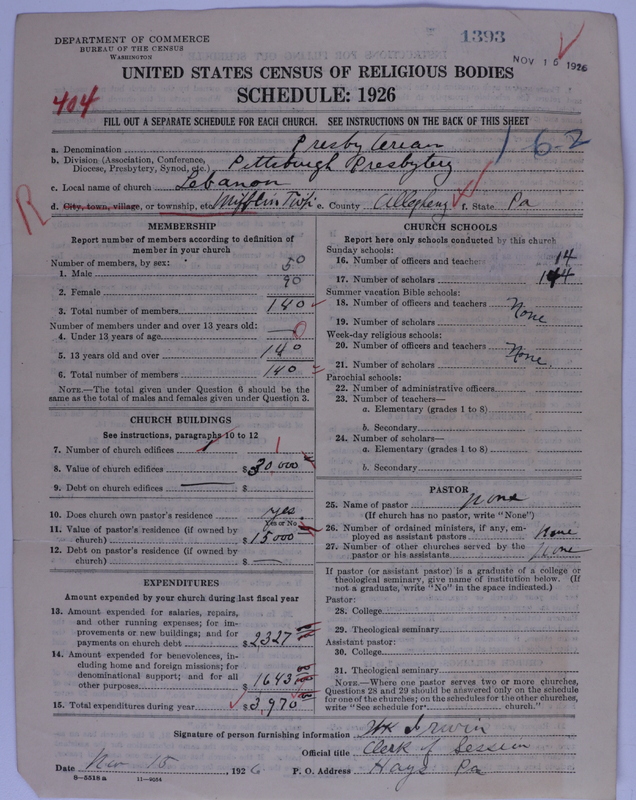 DEPARTMENT OF COMMERCE
BUREAU OF THE CENSUS
WASHINGTON
1393
NOV 15 1926
UNITED STATES CENSUS OF RELIGIOUS BODIES
SCHEDULE: 1926
404
FILL OUT A SEPARATE SCHEDULE FOR EACH CHURCH. SEE INSTRUCTIONS ON THE BACK OF THIS SHEET
a. Denomination Presbyterian
b. Division (Association, Conference, Diocese, Presbytery, Synod, etc.) Pittsburgh Presbytery
1 6-2
c. Local name of church Lebanon
d. City, town, village, or township, etc. Mifflin Twp. e. County Allegheny f. State Pa
R
MEMBERSHIP
Report number of members according to definition of
member in your church
Number of members, by sex:
1. Male 50
2. Female 90
3. Total number of members 140
Number of members under and over 13 years old:
4. Under 13 years of age 0
5. 13 years old and over 140
6. Total number of members 140
NOTE.—The total given under Question 6 should be the
same as the total of males and females given under Question 3.
CHURCH BUILDINGS
See instructions, paragraphs 10 to 12
7. Number of church edifices 1
8. Value of church edifices $30,000
9. Debt on church edifices $
10. Does church own pastor's residence? yes.
Yes or No
11. Value of pastor's residence (if owned by
church) $15000
12. Debt on pastor's residence (if owned by
church) $
EXPENDITURES
Amount expended by your church during last fiscal year
13. Amount expended for salaries, repairs,
and other running expenses; for im-
provements or new buildings; and for
payments on church debt $2327
14. Amount expended for benevolences, in-
cluding home and foreign missions; for
denominational support; and for all
other purposes $1643 00
15. Total expenditures during year $3,970
CHURCH SCHOOLS
Report here only schools conducted by this church
Sunday schools:
16. Number of officers and teachers 14
17. Number of scholars 144
Summer vacation Bible schools:
18. Number of officers and teachers None
19. Number of scholars
Week-day religious schools:
20. Number of officers and teachers None.
21. Number of scholars
Parochial schools:
22. Number of administrative officers
23. Number of teachers—
a. Elementary (grades 1 to 8)
b. Secondary
24. Number of scholars—
a. Elementary (grades 1 to 8)
b. Secondary
PASTOR
25. Name of pastor none
(If church has no pastor, write "None")
26. Number of ordained ministers, if any, em-
ployed as assistant pastors none
27. Number of other churches served by the
pastor or his assistants none
If pastor (or assistant pastor) is a graduate of a college or
theological seminary, give name of institution below. (If
not a graduate, write "No" in the space indicated.)
Pastor:
28. College
29. Theological seminary
Assistant pastor:
30. College
31. Theological seminary
NOTE.—Where one pastor serves two or more churches,
Questions 28 and 29 should be answered only on the schedule
for one of the churches; on the schedules for the other churches,
write "See schedule for church."
Signature of person furnishing information Irwin
Official title Clerk of Session
Date Nov 15, 1926 P. O. Address Hays Pa
8-5518a 11-4054